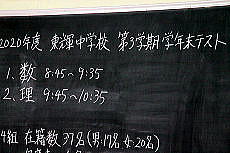 2020年度 東輝中学校 第3学期学年末テスト
1. 数 8:45~9:35
2. 理 9:45~10:35
4組 在籍数 37名(男:17名 女:20名)